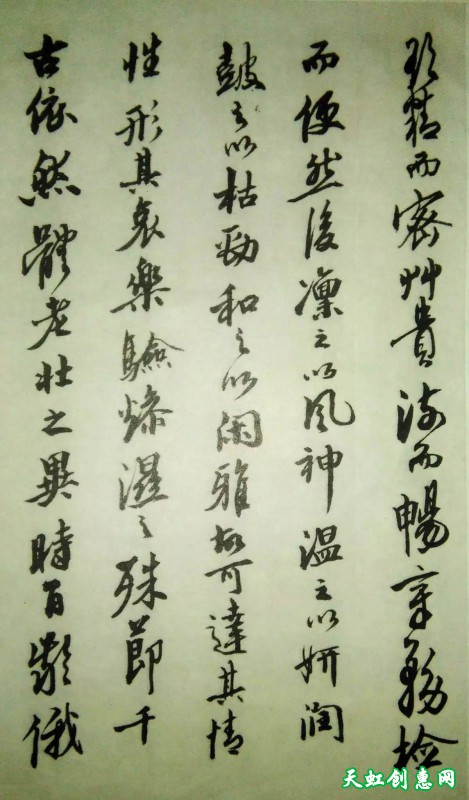 欲精而密艸貴流而暢章務檢
而便然後凜之以風神温之以妍潤
鼓之以枯勁和之以閑雅故可達其情
性形其哀樂驗燥濕之殊節千
古依然體老壯之異時百齡俄
天虹创惠网